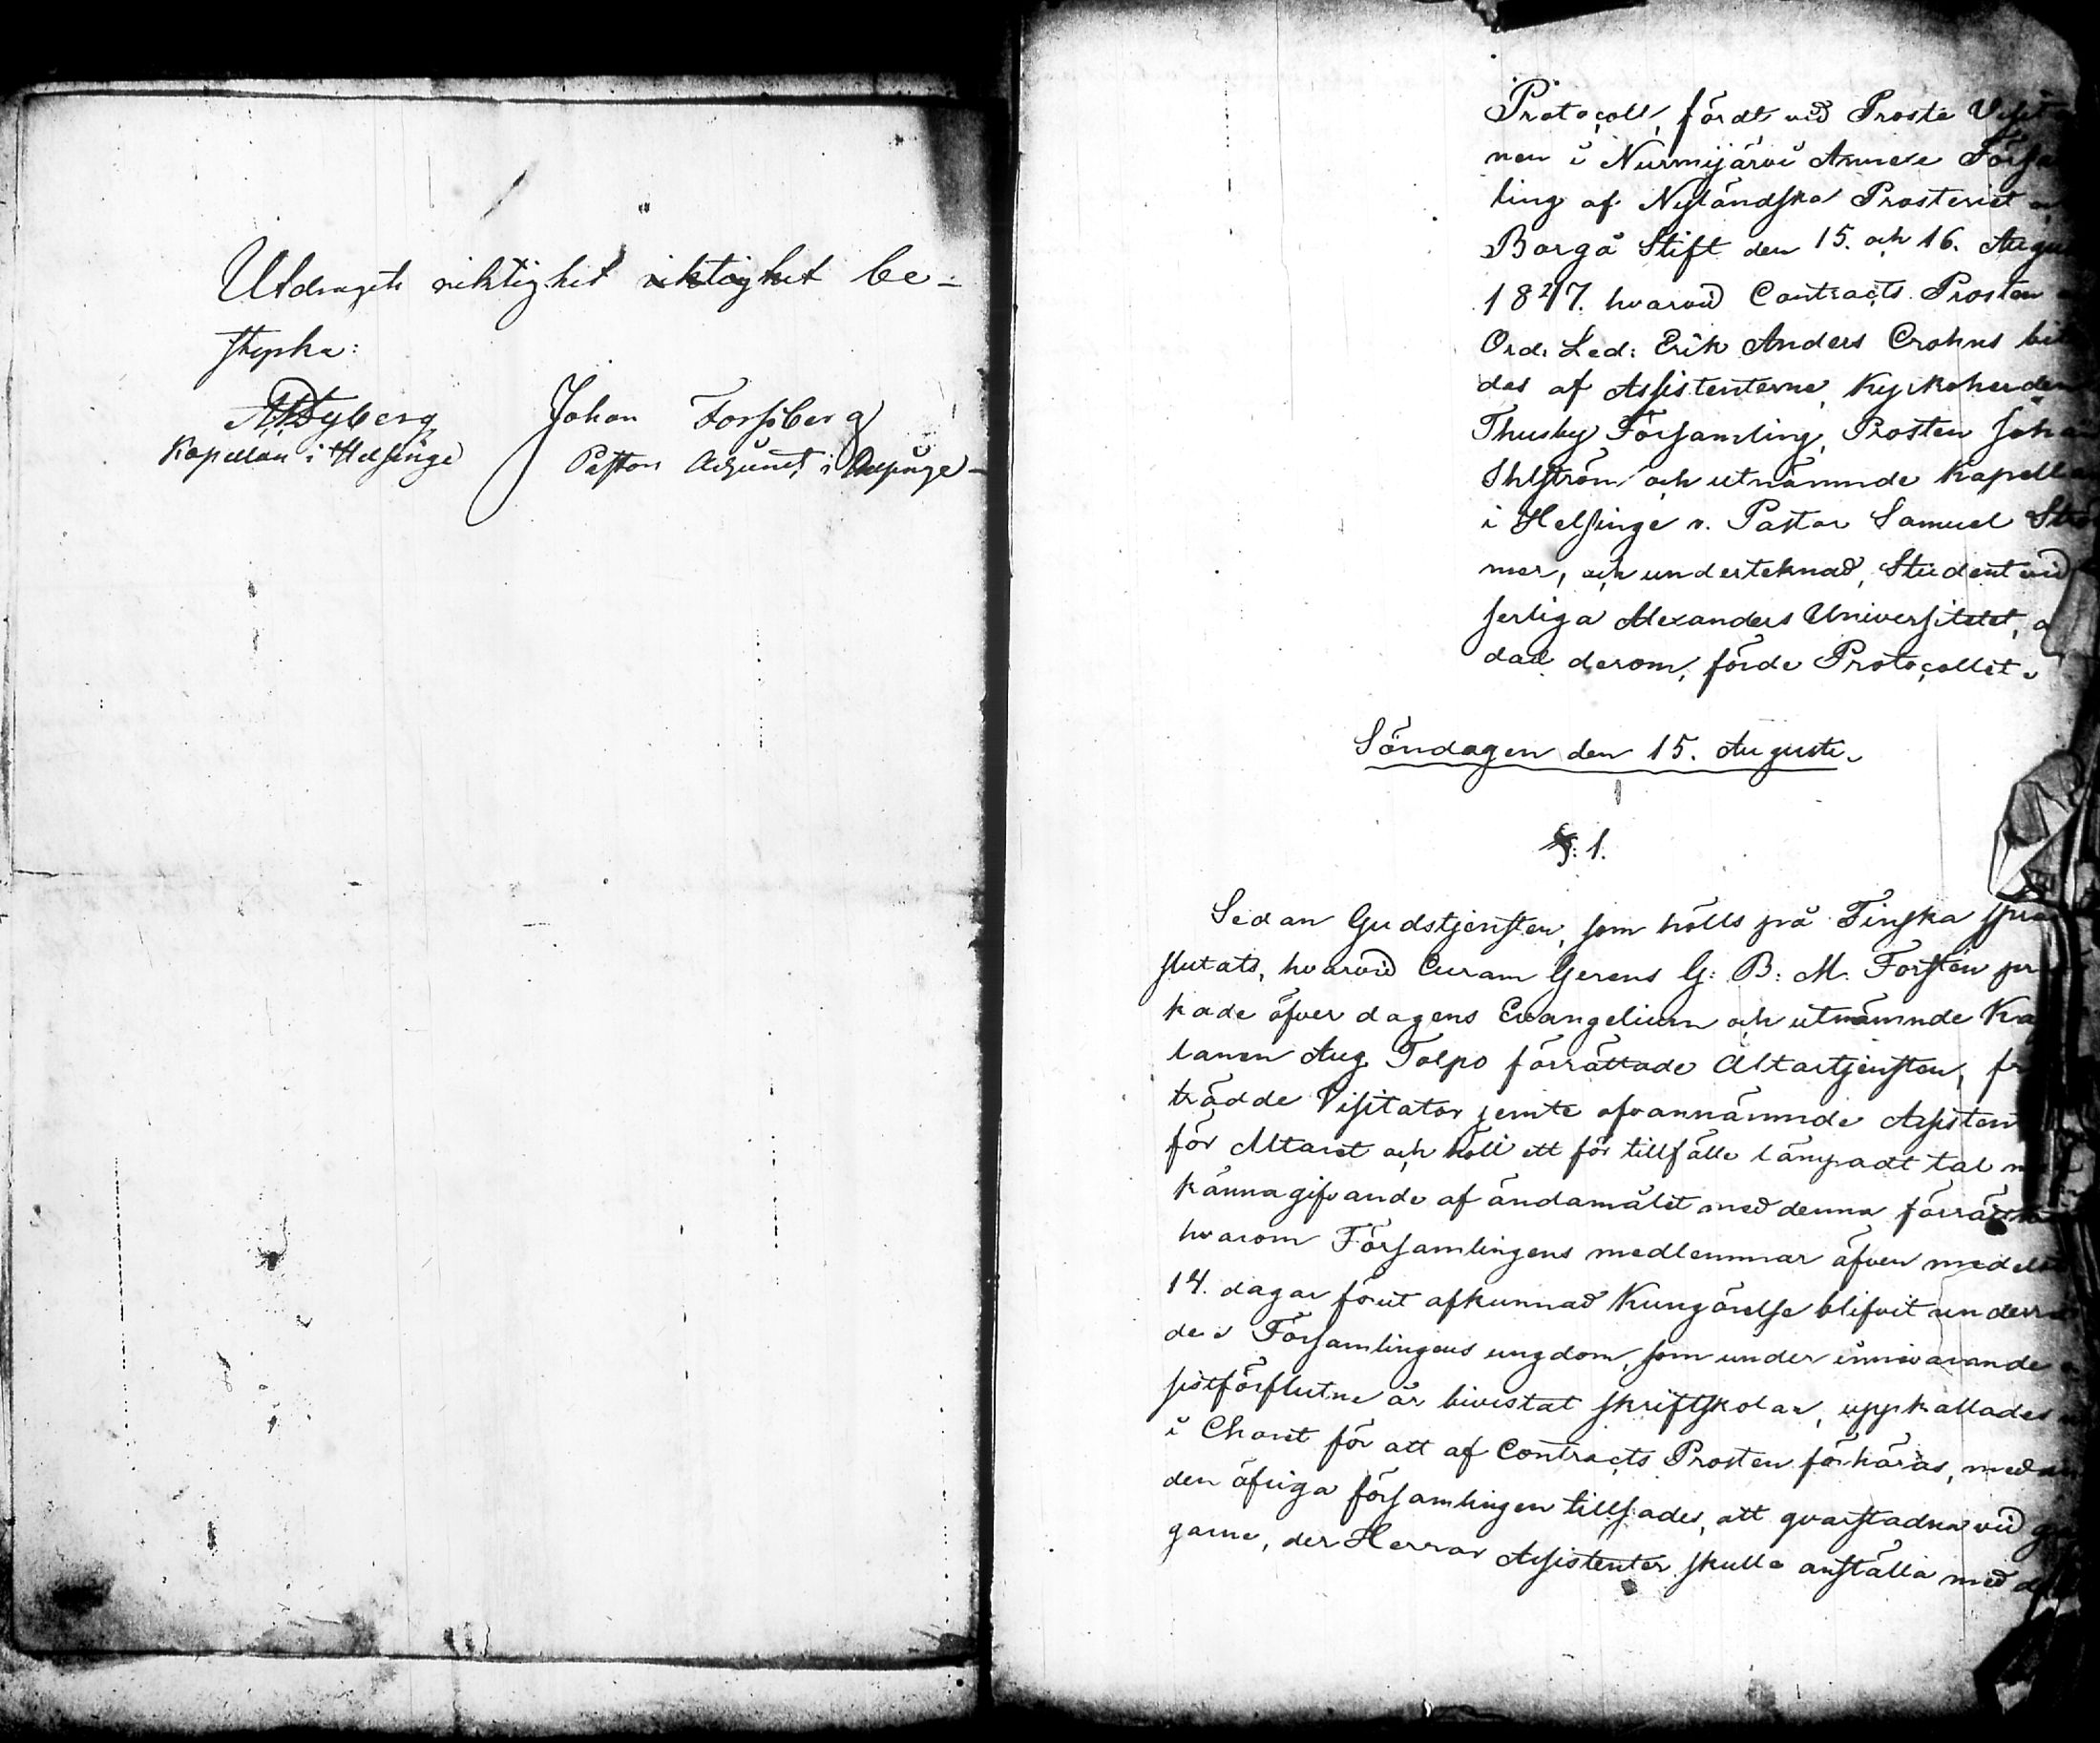 Utdragets riktighet riktighet be-
styrka:
Dyberg
Johan Forsberg
Kapellan i Helsinge
Pastors Adjunct i Helsinge
Protocoll, fördt vid Proste Visita
nen i Nurmijärvi Annexe Försam
ling af Nyländska Prosteriet
Borgå Stift den 15. och 16. Augu
1847. hvarvid Contracts Prosten
Ord: Led: Erik Anders Crohns bi
des af Assistenterne, Kyrkoherden
Thusby Församling, Prosten Johan
Ihlström och utnämnde Kapella
i Helsinge v. Pastor Samuel Strö
mer, och undertecknad, Student vid
serliga Alexanders Universitetet, a
dad derom, förde Protocollet.
Söndagen den 15. Augusti.
§: 1.
Sedan Gudstjensten, som hölls på Finska språ
slutats, hvarvid Curam Gerens G: B: M. Forstén pr
kade öfver dagens Evangelium och utnämnde Ka
lanen Aug. Tolpo förrättade Altartjensten, fr
trädde Visitator jemte ofvannämnde Assisten
för Altaret och höll ett för tillfälle lämpadt tal m
kännagifvande af ändamålet med denna förrätt
hvarom Församlingens medlemmar äfven medelst
14. dagar förut afkunnad Kungörelse blifvit underrät
de. Församlingens ungdom, som under innevarande
sistförflutne år bivistat skriftskolan, uppkallades
i Choret för att af Contracts Prosten förhöras, medan
den öfriga församlingen tillsades, att qvarstadna vid gå
garne, der Herrar Assistenter skulle anställa med d